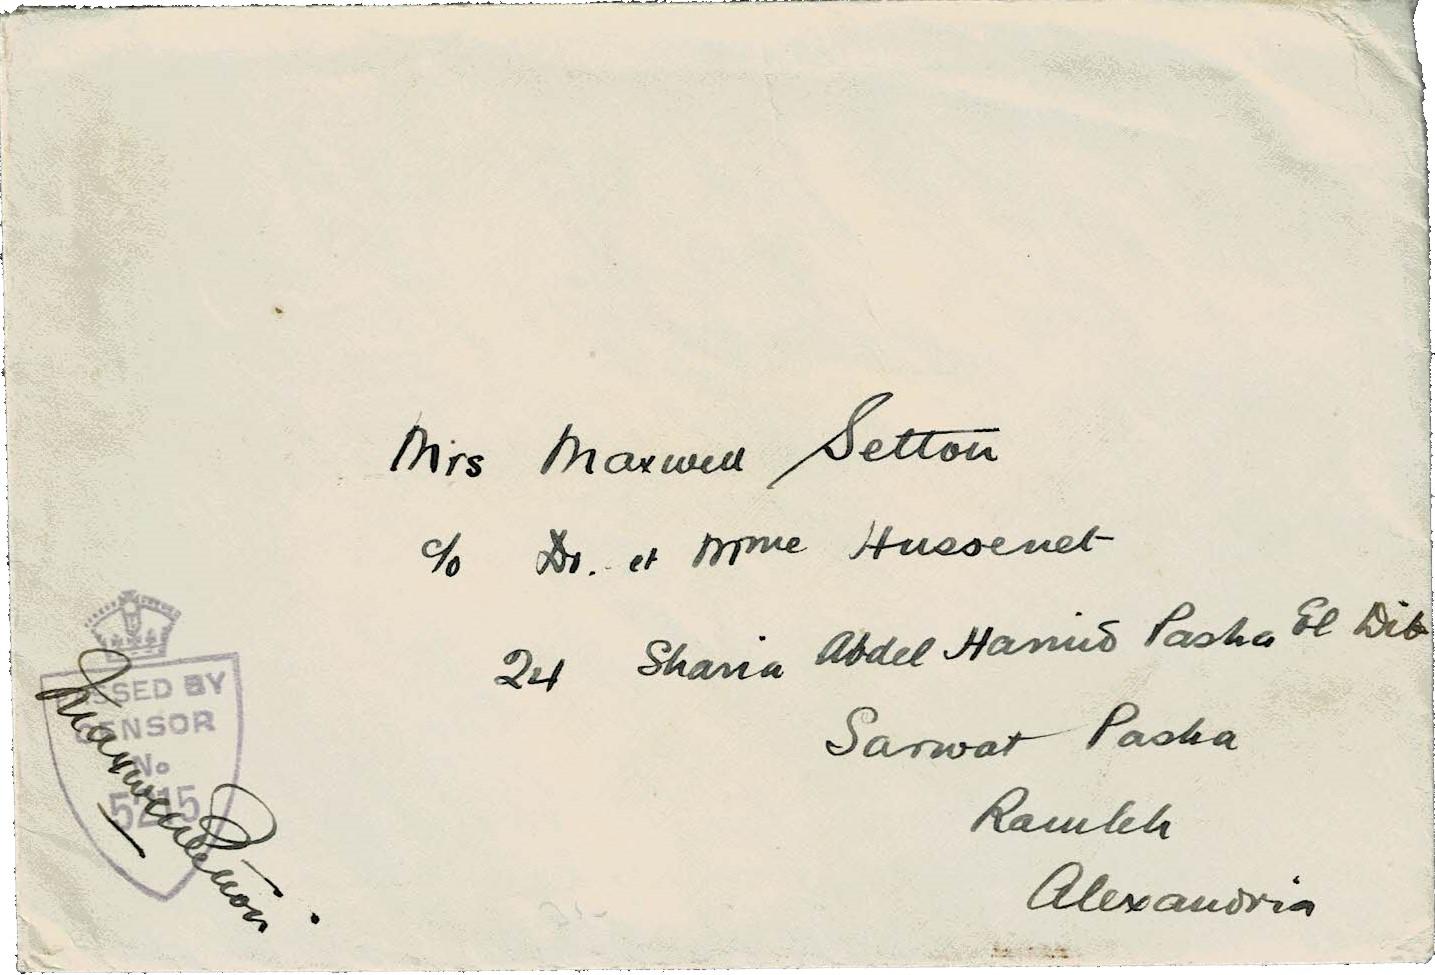 Mrs Maxwell Setton
c/o Dr. et Mme Hussenet
24 Sharia Abdel Hamid Pasha El Dib
Sarwat Pasha
Ramleh
Alexandria
PASSED BY
CENSOR
No
5215
Maxwell Setton